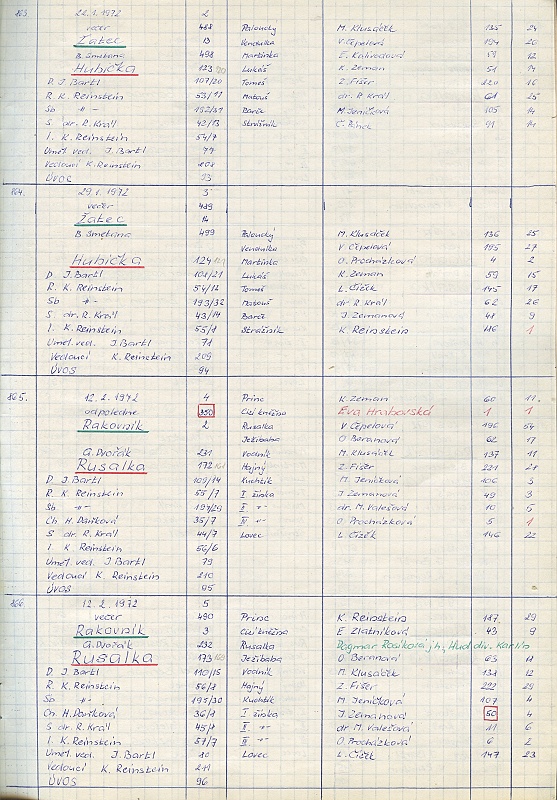 863. 22.1.1972 2
večer 488 Palouchý M. Klusáček 135 24
Žatec 13 Vendulka V. Čepelová 194 26
B. Smetana 498 Martinka E. Kalivodová 12
Hubička 123 Lukáš K. Zeman 51 14
D. J. Bartl 107/20 Tomeš Z. Fišer 220 16
R. K. Reinstein 53/11 Matouš dr. R. Král 61 25
Sb -"- 192/31 Barče M. Jeničková 105 14
S dr. R. Král 42/13 Strážník Č. 14
I. K. Reinstein 54/7
Uměl. ved. J. Bartl 77
Vedoucí K. Reinstein 208
ÚVOS 93
864. 29.1.1972 3
večer 489
Žatec 14
B. Smetana 499 Palouchý M. Klusáček 136 25
Vendulka V. Čepelová 195 27
Hubička 124 Martinka O. Procházková 4 2
D J. Bartl 108/21 Lukáš K. Zeman 59 15
R. K. Reinstein 54/12 Tomeš L. Čížek 145 17
Sb -"- 193/32 Matouš dr R. Král 62 26
S dr. R. Král 43/14 Barče J. Zemanová 48 9
I. K. Reinstein 55/1 Strážník K. Reinstein 186 1
Uměl. ved. J. Bartl 71
Vedoucí K. Reinstein 209
ÚVOS 94
865. 12.2.1972 4 Princ K. Zeman 60 11.
odpoledne 350 Cizí kněžna Eva Hrabovská 1 1
Rakovník 2 Rusalka V. Čepelová 196 54
Ježibaba O Beranová 62 17
A. Dvořák 231 Vodník M. Klusáček 137 11
Rusalka 172 Hajný Z. Fišer 221 21
D J. Bartl 109/14 Kuchtík M. Jeničková 106 3
R. K. Reinstein 55/7 I žínka J. Zemanová 49 3
Sb -"- 194/29 II -"- dr. M. Valešová 10 5
Ch H. Daňková 35/7 -"- O Procházková 5 1
S dr. R. Král 44/7 Lovec L. Čížek 146 22
I. K Reinstein 56/6
Uměl. ved. J. Bartl 79
Vedoucí K. Reinstein 210
ÚVOS 95
866 12.2.1972 5
večer 490 Princ K. Reinstein 187 29
Rakovník 3 Cizí kněžna E Zlatníková 43 9
A. Dvořák 232 Rusalka Dagmar j. h., Hud. div. Karlín
Rusalka 173 Ježibaba O' Beranová 63 11
D J. Bartl 110/15 Vodník M. Klusáček 138 12
R. K. Reinstein 56/8 Hajný Z. Fišer 222 29
Sb -"- 195/30 Kuchtík M Jeničková 107 4
Ch. H. Daňková 36/1 I žínka J. Zemanová 50 4
S dr. R. Král 45/1 II. -"- dr M. Valešová 11 6
I. K. Reinstein 57/7 -"- O. Procházková 6 2
Uměl. ved. J. Bartl 10 Lovec L. Čížek 147 23
Vedoucí K. Reinstein 211
ÚVOS 96